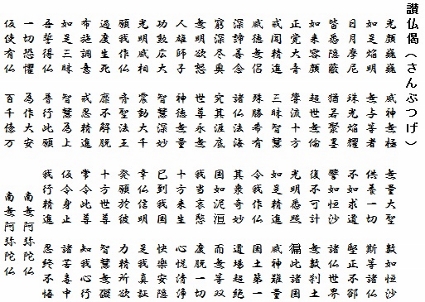 讃仏偈(さんぶつげ)
光顔巍巍 威神無極
如是焔明 無与等者
日月摩尼 珠光焔耀
皆悉隠蔽 猶若聚墨
如来容顔 超世無倫
正覚大音 響流十方
戒聞精進 三昧智慧
威徳無侶 殊勝希有
深諦善念 諸仏法海
窮深尽奥 究其涯底
無明欲怒 世尊永無
人雄師子 神徳無量
功勲広大 智慧深妙
光明威相 震動大千
願我作仏 斉聖法王
過度生死 靡不解脱
布施調意 戒忍精進
如是三昧 智慧為上
吾誓得仏 普行此願
一切恐懼 為作大安
仮使有仏 百千億万
無量大聖 数如恒沙
供養一切 斯等諸仏
不如求道 堅正不却
譬如恒沙 諸仏世界
復不可計 無数刹土
光明悉照 徧此諸国
如是精進 威神難量
令我作仏 国土第一
其衆奇妙 道場超絶
国如泥洹 而無等双
我当哀愍 度脱一切
十方来生 心悦清浄
已到我国 快楽安穏
幸仏信明 是我真証
発願於彼 力精所欲
十方世尊 智慧無礙
常令此尊 知我心行
仮令身止 諸苦毒中
我行精進 忍終不悔
南無阿弥陀仏
南無阿弥陀仏